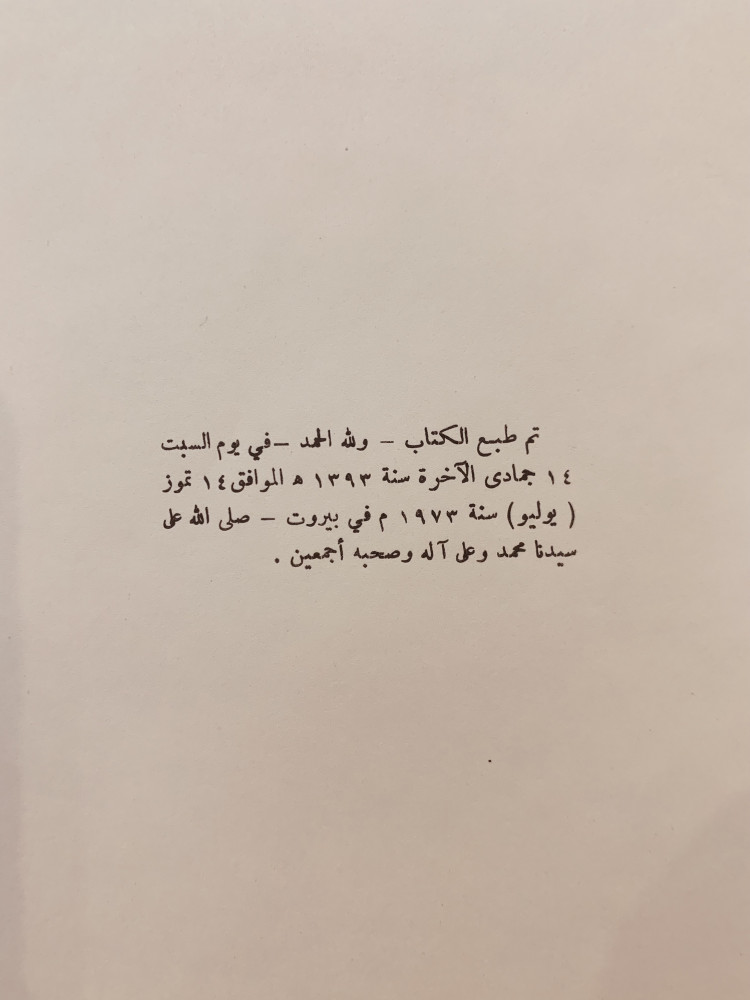 تم طبع الكتاب – ولله الحمد – في يوم السبت
١٤ جمادى الآخرة سنة ١٣٩٣ ه الموافق ١٤ تموز
( يوليو ) سنة ١٩٧٣ م في بيروت – صلى الله على
سيدنا محمد وعلى آله وصحبه أجمعين .